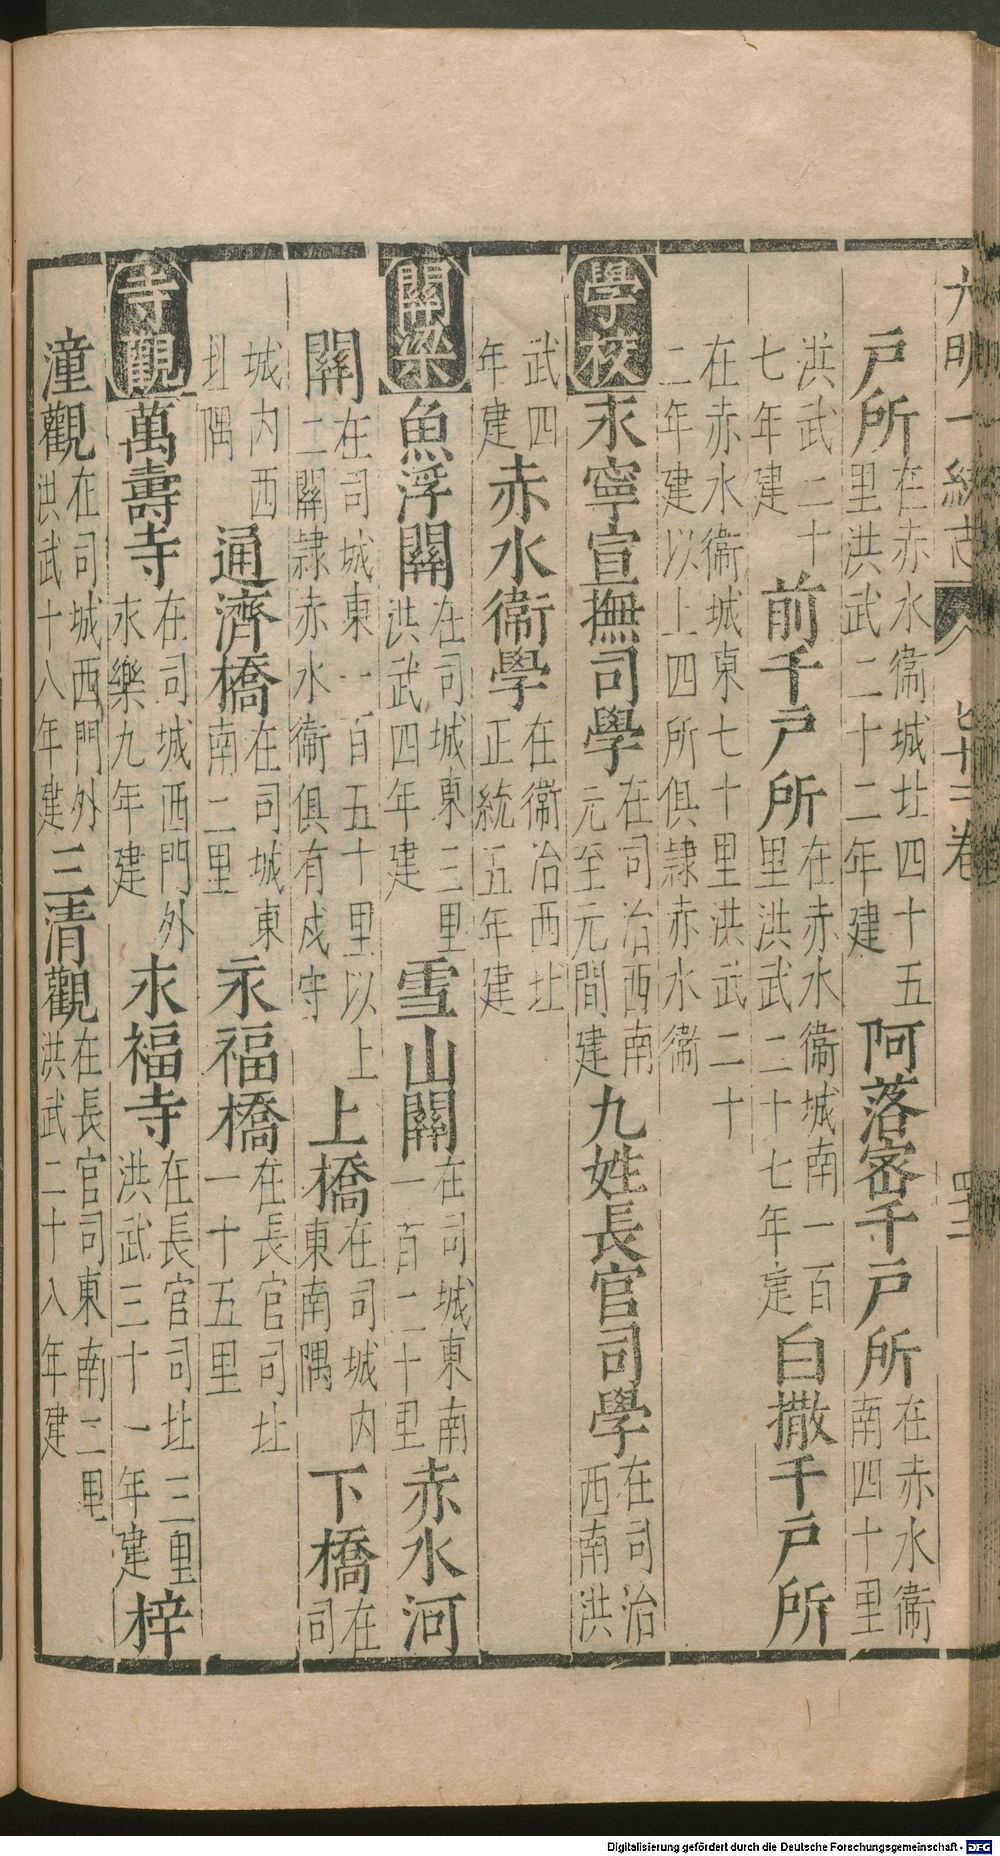 大明一統志　七十二卷
戶所在赤水衞城北四十五里洪武二十二年建　阿落密千戶所在赤水衞南四十里
洪武二十七年建　前千戶所在赤水衞城南一百里洪武二十七年建　白撒千戶所
在赤水衞城東七十里洪武二十二年建以上四所俱隸赤水衞
學校　永寧宣撫司學在司治西南元至元間建　九姓長官司學在司治西南洪
武四年建　赤水衞學在衞治西北正統五年建
關梁　魚浮關在司城東三里洪武四年建　雪山關在司城東南一百二十里　赤水河
關在司城東一百五十里以上二關隸赤水衞俱有戍守　上橋在司城内東南隅　下橋在司
城内西北隅　通濟橋在司城東南二里　永福橋在長官司北一十五里
寺觀　萬壽寺在司城西門外永樂九年建　永福寺在長官司北三里洪武三十一年建　梓
潼觀在司城西門外洪武十八年建　三清觀在長官司東南二里洪武二十八年建
Digitalisierung gefördert durch die Deutsche Forschungsgemeinschaft - DFG